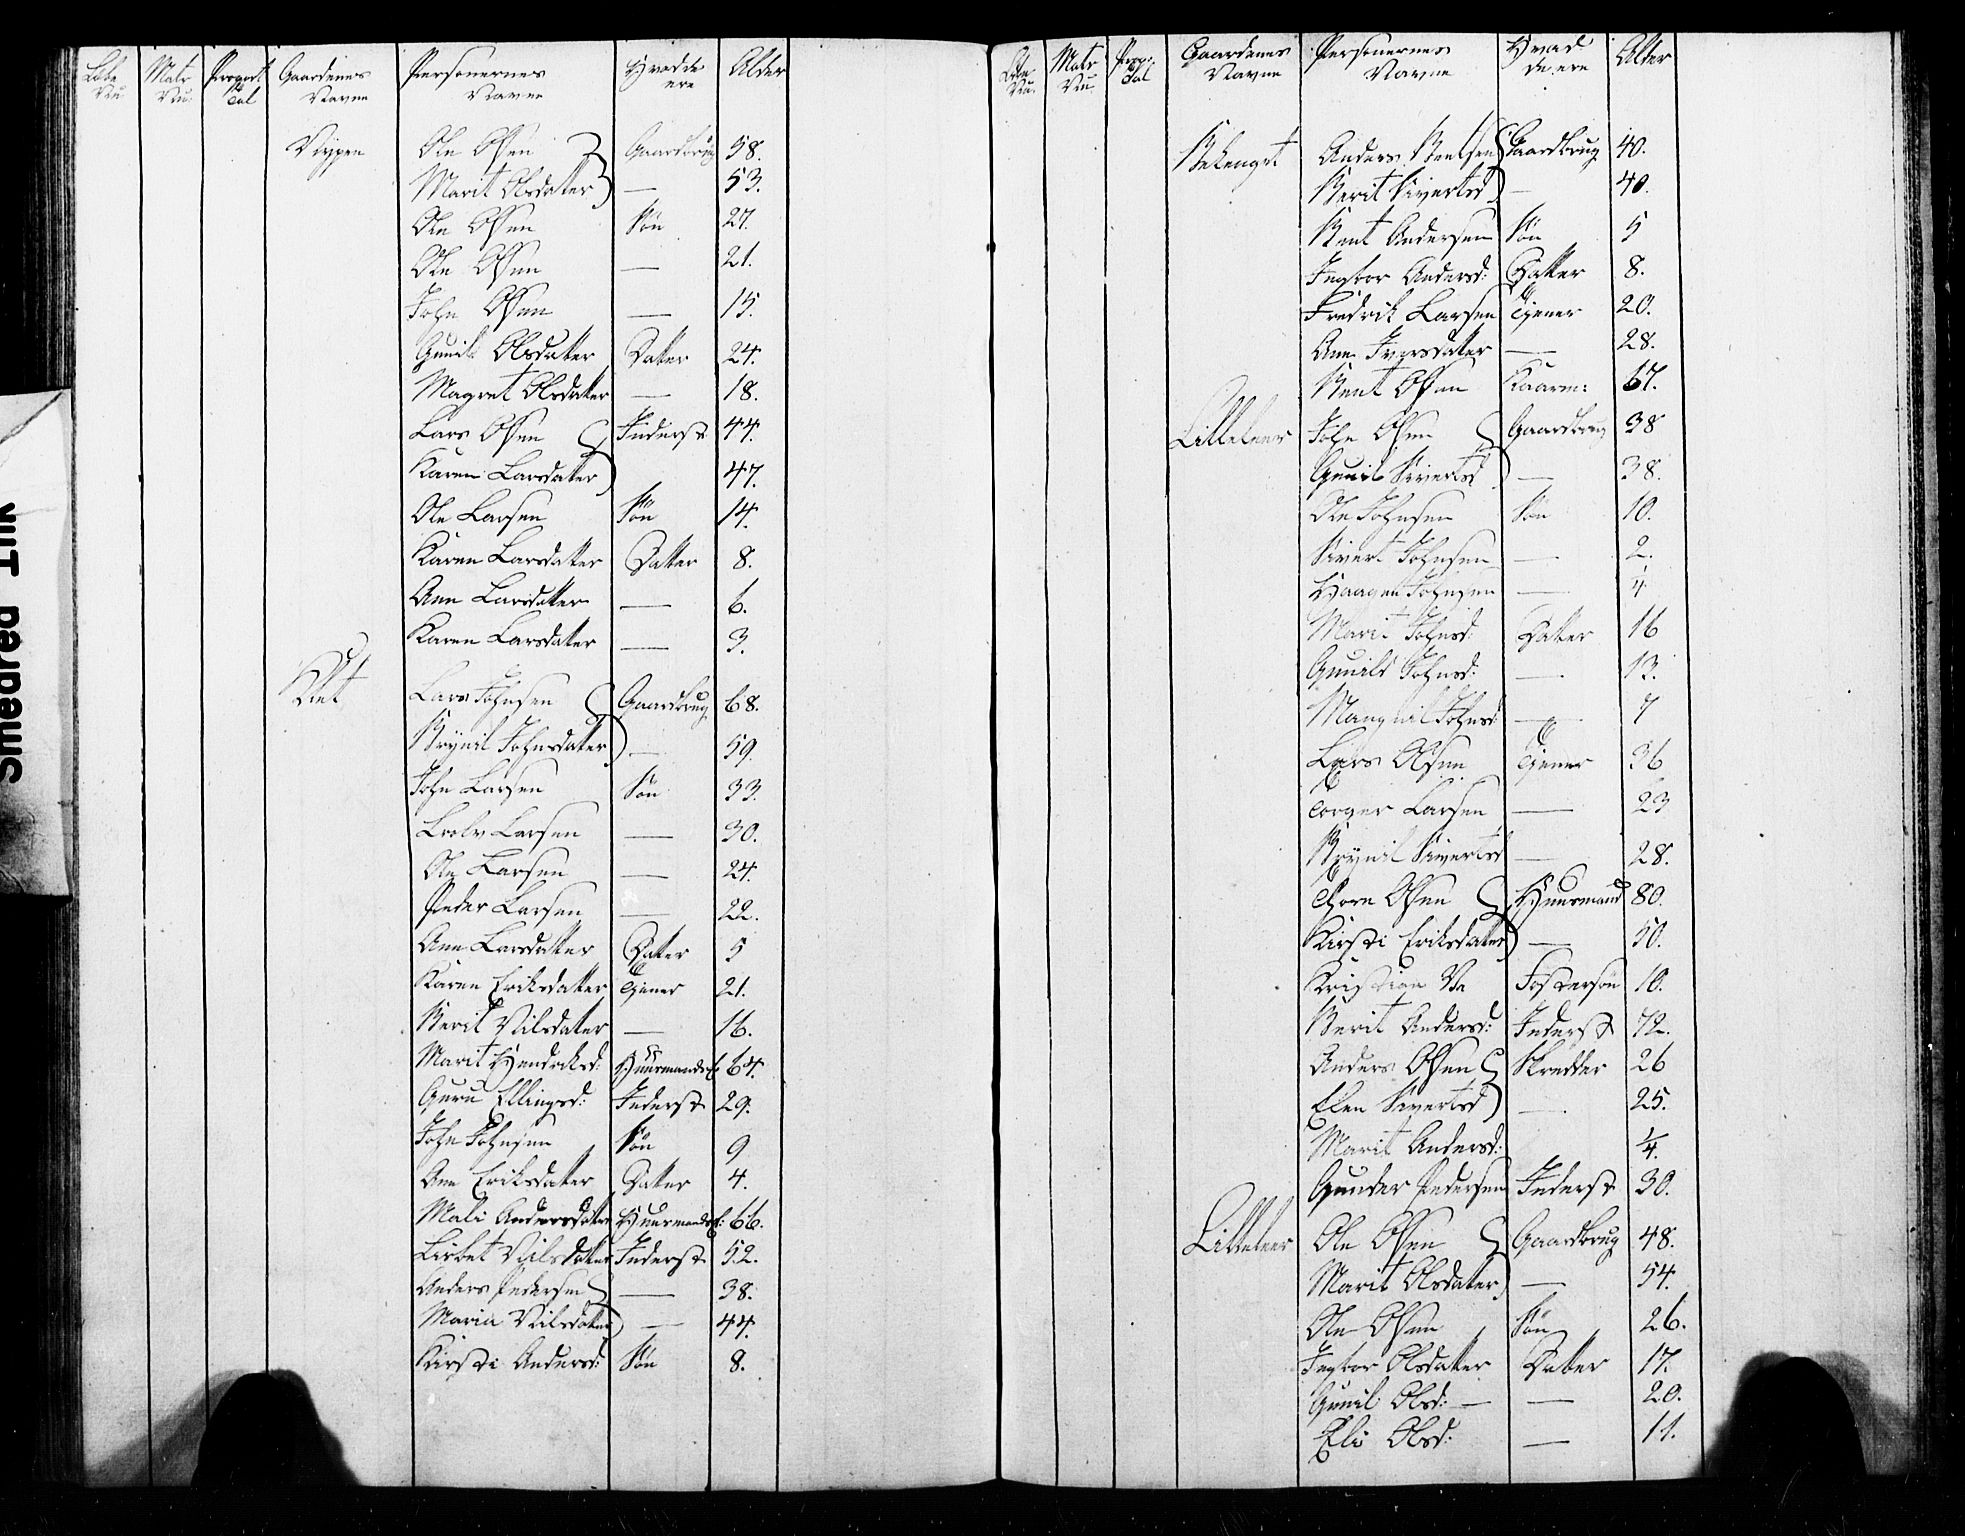 Løbe Nu. Matr Nu. Proport Tal Gaardenes Navne Personernes Navne Hvad de ere Alder
Nypen Ole Olsen Gaardbrug 58.
Marit Olsdatter — 53.
Ole Olsen Søn 27.
Ole Olsen — 21.
John Olsen — 15.
Gunild Olsdatter Datter 24.
Magret Olsdatter — 18.
Lars Olsen Inderst 44.
Karen Larsdatter 47.
Ole Larsen Søn 14.
Karen Larsdatter Datter 8.
Ane Larsdatter — 6.
Karen Larsdatter — 3.
Lars Johnsen Gaardbrug 68.
Brynil Johnsdatter — 59.
John Larsen Søn 33.
Larsen — 30.
Ole Larsen — 24.
Peder Larsen — 22.
Ane Larsdatter Datter 5
Karen Eriksdatter Tjener 21.
Berit Nilsdatter — 16.
Marit Hendriksd: Huusmands 64.
Guru Ellingsd: Inderst 29.
John Johnsen Søn 9
Ane Eriksdatter Datter 4.
Mali Andersdatter Huusmands 66.
Lisbet Nilsdatter Inderst 52.
Anders Pedersen — 38.
Maria Nilsdatter — 44.
Kirsti Andersd: Søn 8.
Løbe Nu. Matr Nu. Prop: Tal Gaardenes Navne Personernes Navne Hvad de ere Alder
Anders Bentsen Gaardbrug 40.
Berit Sivertsd — 40.
Bent Andersen Søn 5
Ingbor Andersd: Datter 8.
Fredrik Larsen Tjener 20.
Ane Ivarsdatter — 28.
Bent Olsen Kaarm: 67.
Litleleer John Olsen Gaardbrug 38
Gunil Sivertsd — 38.
Ole Johnsen Søn 10.
Sivert Johnsen — 2.
Haagen Johnsen — 1/4
Marit Johnsd: Datter 16
Gunild Johnsd: — 13.
Magnil Johnsd: — 7
Lars Olsen Tjener 36
Torger Larsen — 23
Brynil Sivertsd — 28.
Thore Olsen Huusmand 80.
Kirsti Eriksdatter — 50.
Kristian Fostersøn 10.
Berit Andersd: Inderst 72.
Anders Olsen Skredder 26
Elen Sivertsd — 25.
Marit Andersd: 1/4.
Gunder Pedersen Inderst 30.
Litleleer Ole Olsen Gaardbrug 48.
Marit Olsdatter — 54.
Ole Olsen Søn 26.
Ingbor Olsdatter Datter 17.
Gunil Olsd: — — 20.
Eli Olsd: — 11.
Shedred Ink